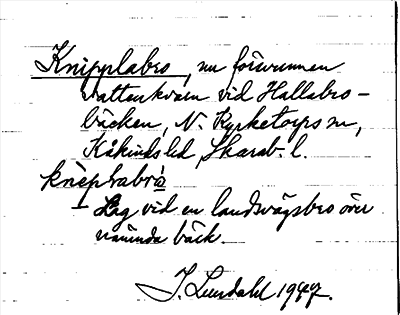 Knipplabro, nu försvunnen
vattenkvarn vid Hallabro-
bäcken, N. Kyrketorps sn,
Kåkinds hd, Skarab. l.
Låg vid en landsvägsbro över
nämnda bäck.
J. Lundahl 1947.